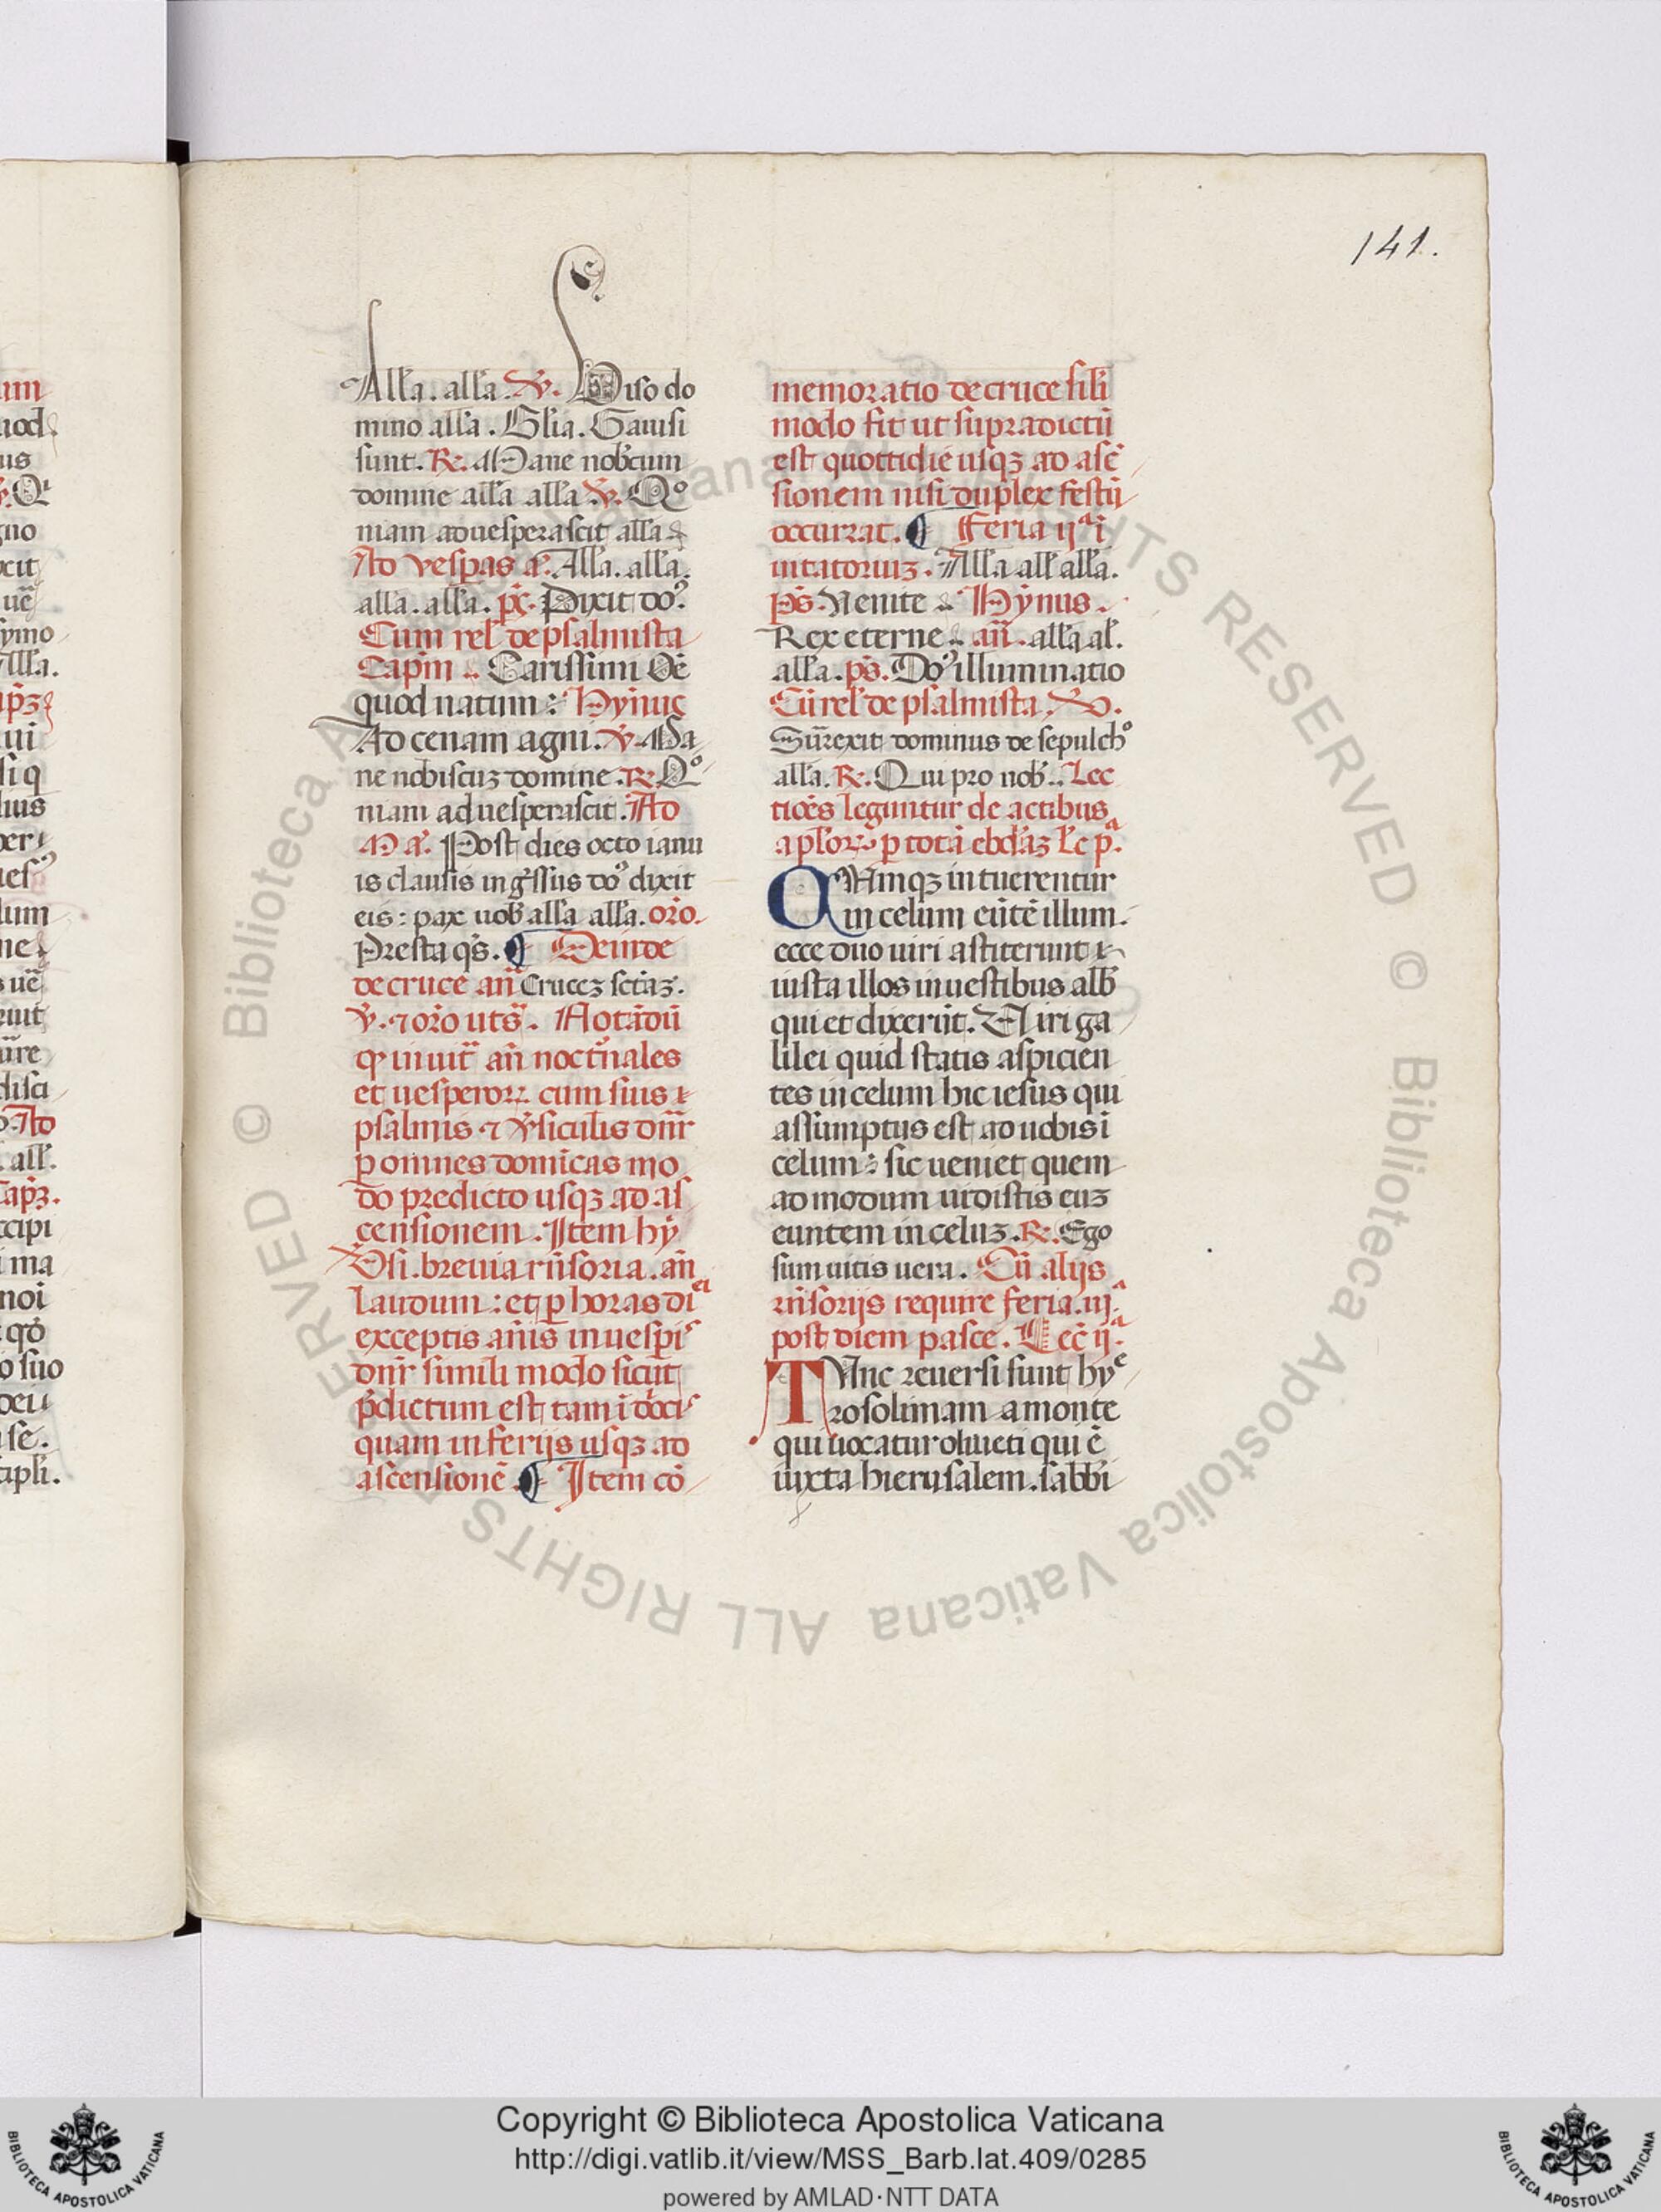 141.
um
uod
us
gno
xcit
uē
ymo
ui
si q
lius
per
lum
ne
s uē
disci
Ad
all'.
ccipi
ma
noi
o suo
se.
All'a. all'a. V̄. Uiso do
mino all'a. Gl'ia. Gauisi
sunt. R. Mane nob'cum
domine all'a all'a V̄. Qº
niam aduesperascit all'a
Ad vesp̄as a. All'a. all'a.
all'a. all'a. Dixit do.
Cum rel' de psalmista
Cap̄m Carissimi Oē
quod natum: Hymus
Ad cenam agni. V̄. Ma
ne nobiscuz domine. R. Qº
niam aduesperascit. Ad
M a. Post dies octo ianu
is clausis ing̃ssus do dixit
eis: pax uob' all'a all'a. or̄o.
Presta q̄s. ¶ Deinde
de cruce an̄ Crucez sc̄taz.
V̄. ⁊ or̄o ut s̄. Notādū
ꝙ inuit̄ an̄ nocturnales
et uesperoꝝ cum suis
psalmis ⁊ v̄siculis dn̄r
ꝑ omnes domīcas mo
do predicto usqꝫ ad as
censionem. Item hy
V̄si. breuia rn̄soria. an̄
laudum: et ꝑ horas di
exceptis an̄is in uesp̄i
dn̄r simili modo sicut
p̄dictum est tam ī
quam in ferijs usqꝫ ad
ascēsionē. ¶ Item cō
memoratio de cruce sil'i
modo fit ut supradictū
est quottidie usqꝫ ad ascē
sionem nisi duplex festū
occurrat. ¶ Feria ijª ī
uitatoriuꝫ. All'a all' all'a.
p̄s. Uenite Hymus.
Rex eterne. an̄. all'a al'.
all'a. p̄s. Do illuminatio
Cū rel' de psalmista. V̄.
Surrexit dominus de sepulchº
all'a. R. Qui pro nob'. Lec
tiōes leguntur de actibus
apl'oꝝ ꝑ totā ebd'aꝫ Lc̄ pª.
CUmqꝫ intuerentur
in celum eūtē illum.
ecce duo uiri astiterunt
iusta illos in uestibus alb'
qui et dixerūt. Uiri ga
lilei quid statis aspicien
tes in celum hic iesus qui
assumptus est a uobis ī
celum: sic ueniet quem
admodum uidistis euꝫ
euntem in celuꝫ. R. Ego
sum uitis uera. Cū alijs
rn̄sorijs require feria. iijª.
post diem pasce. Lec̄ ijª.
TUnc reuersi sunt hye
rosolimam a monte
qui uocatur oliueti qui ē
iuxta hierusalem. sabb'i
© Biblioteca Apostolica Vaticana ALL RIGHTS RESERVED © Biblioteca Apostolica Vaticana ALL RIGHTS RESERVED
BIBLIOTECA APOSTOLICA VATICANA
Copyright © Biblioteca Apostolica Vaticana
http://digi.vatlib.it/view/MSS_Barb.lat.409/0285
powered by AMLAD·NTT DATA
BIBLIOTECA APOSTOLICA VATICANA